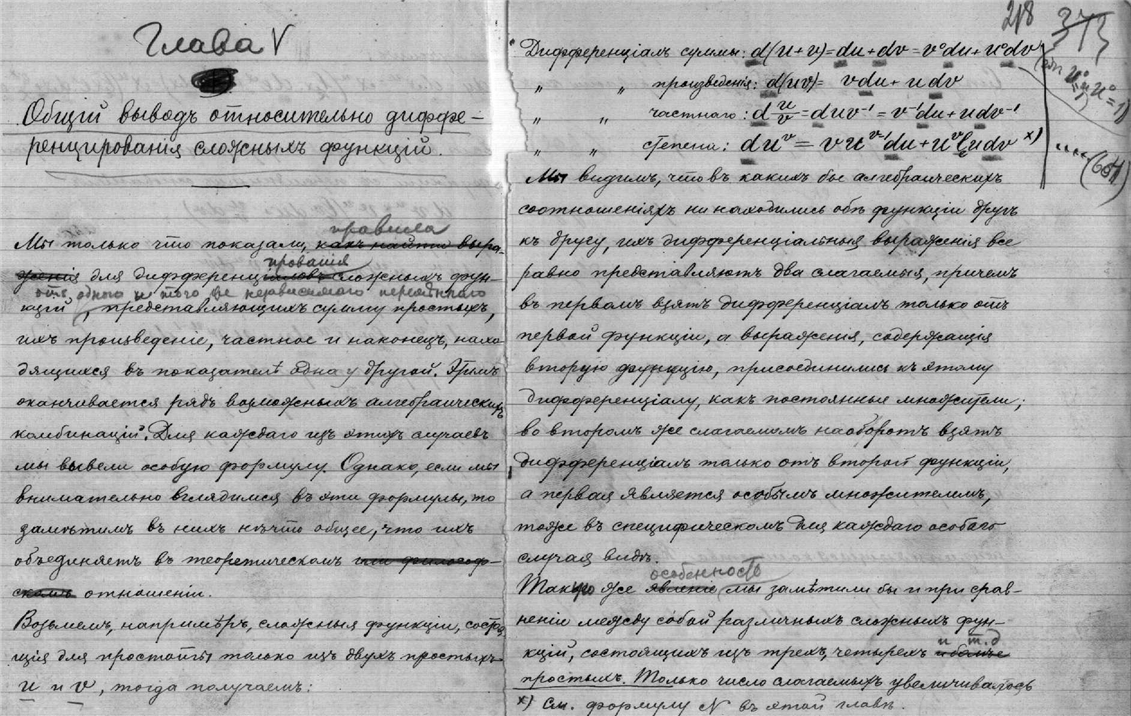 Глава V
Общій выводъ относительно диффе-
ренцированія сложныхъ функцій.
правила
Мы только что показали, какъ найти выра-
женія для дифференцированія сложныхъ фун-
отъ одного и того же независимаго переменнаго
кцій, представляющихъ сумму простыхъ,
ихъ произведеніе, частное и наконецъ, нахо-
дящихся въ показателѣ одна у другой. Этимъ
оканчивается рядъ возможныхъ алгебраическихъ
комбинацій. Для каждаго изъ этихъ случаевъ
мы вывели особую формулу. Однако, если мы
внимательно вглядимся, въ эти формулы, то
замѣтимъ въ нихъ нѣчто общее, что ихъ
объединяетъ въ теоретическомъ или философ-
скомъ отношеніи.
Возьмемъ, напримѣръ, сложныя функціи, состоя-
щія для простоты только изъ двухъ простыхъ
u и v, тогда получаемъ:
218 373
Дифференціалъ суммы: d(u+v)=du+dv=v°du+u°dv
" произведенія: d(uv)= vdu+udv
" " частнаго: d u/v = duv⁻¹ = v⁻¹du+udv⁻¹
" " степени: du^v = vu^(v-1)du+u^v ℓudv ˣ⁾
Мы видимъ, что въ какихъ бы алгебраическихъ
соотношеніяхъ ни находились обѣ функціи другъ
къ другу, ихъ дифференціальныя выраженія все
равно представляютъ два слагаемыя, причемъ
въ первомъ взятъ дифференціалъ только отъ
первой функціи, а выраженія, содержащія
вторую функцію, присоединились къ этому
дифференціалу, какъ постоянные множители;
во второмъ же слагаемомъ наоборотъ взятъ
дифференціалъ только отъ второй функціи,
а первая является особымъ множителемъ,
тоже въ специфическомъ для каждаго особаго
случая видѣ.
особенность
Такую же явленіе мы замѣтили бы и при срав-
неніи между собой различныхъ сложныхъ фун-
и т.д
кцій, состоящихъ изъ трехъ, четырехъ и болѣе
простыхъ. Только число слагаемыхъ увеличивалось
x) См. формулу N въ этой главѣ.